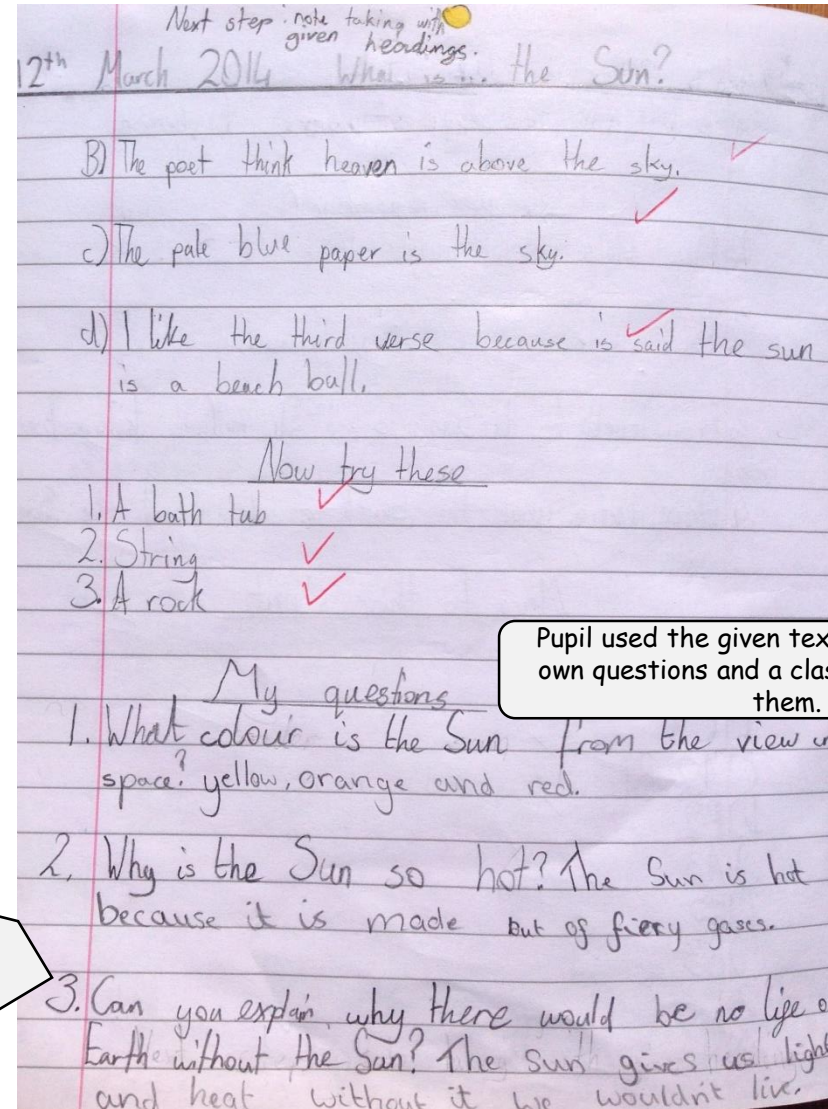 Next step: note taking with
given headings.
12th March 2014 What is... the Sun?
B) The poet think heaven is above the sky.
c) The pale blue paper is the sky.
d) I like the third verse because is said the sun
is a beach ball.
Now try these
1. A bath tub
2. String
3. A rock
Pupil used the given tex
own questions and a clas
them.
My questions
1. What colour is the Sun from the view
space? yellow, orange and red.
2. Why is the Sun so hot? The Sun is hot
because it is made out of fiery gases.
3. Can you explain why there would be no life o
Earth without the Sun? The Sun gives us light
and heat without it we wouldn't live.